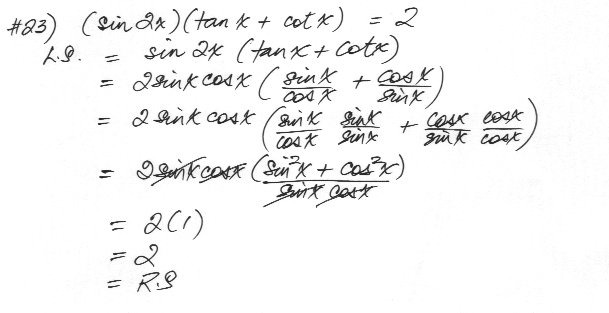 #23) (sin 2x)(tan x + cot x) = 2
L.S. = sin 2x (tan x + cot x)
= 2 sin x cos x (sin x / cos x + cos x / sin x)
= 2 sin x cos x (sin x / cos x sin x / sin x + cos x / sin x cos x / cos x)
= 2 sin x cos x (sin²x + cos²x) / sin x cos x
= 2(1)
= 2
= R.S